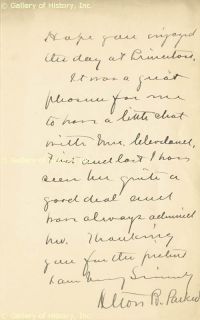 © Gallery of History, Inc.
Hope you enjoyed
the day at Princeton.
It was a great
pleasure for me
to have a little chat
with Mrs. Cleveland,
First and last I have
seen her quite a
good deal and
have always admired
her. Thanking
you for the picture
I am Very Sincerely
Alton B. Parker
© Gallery of History, Inc.